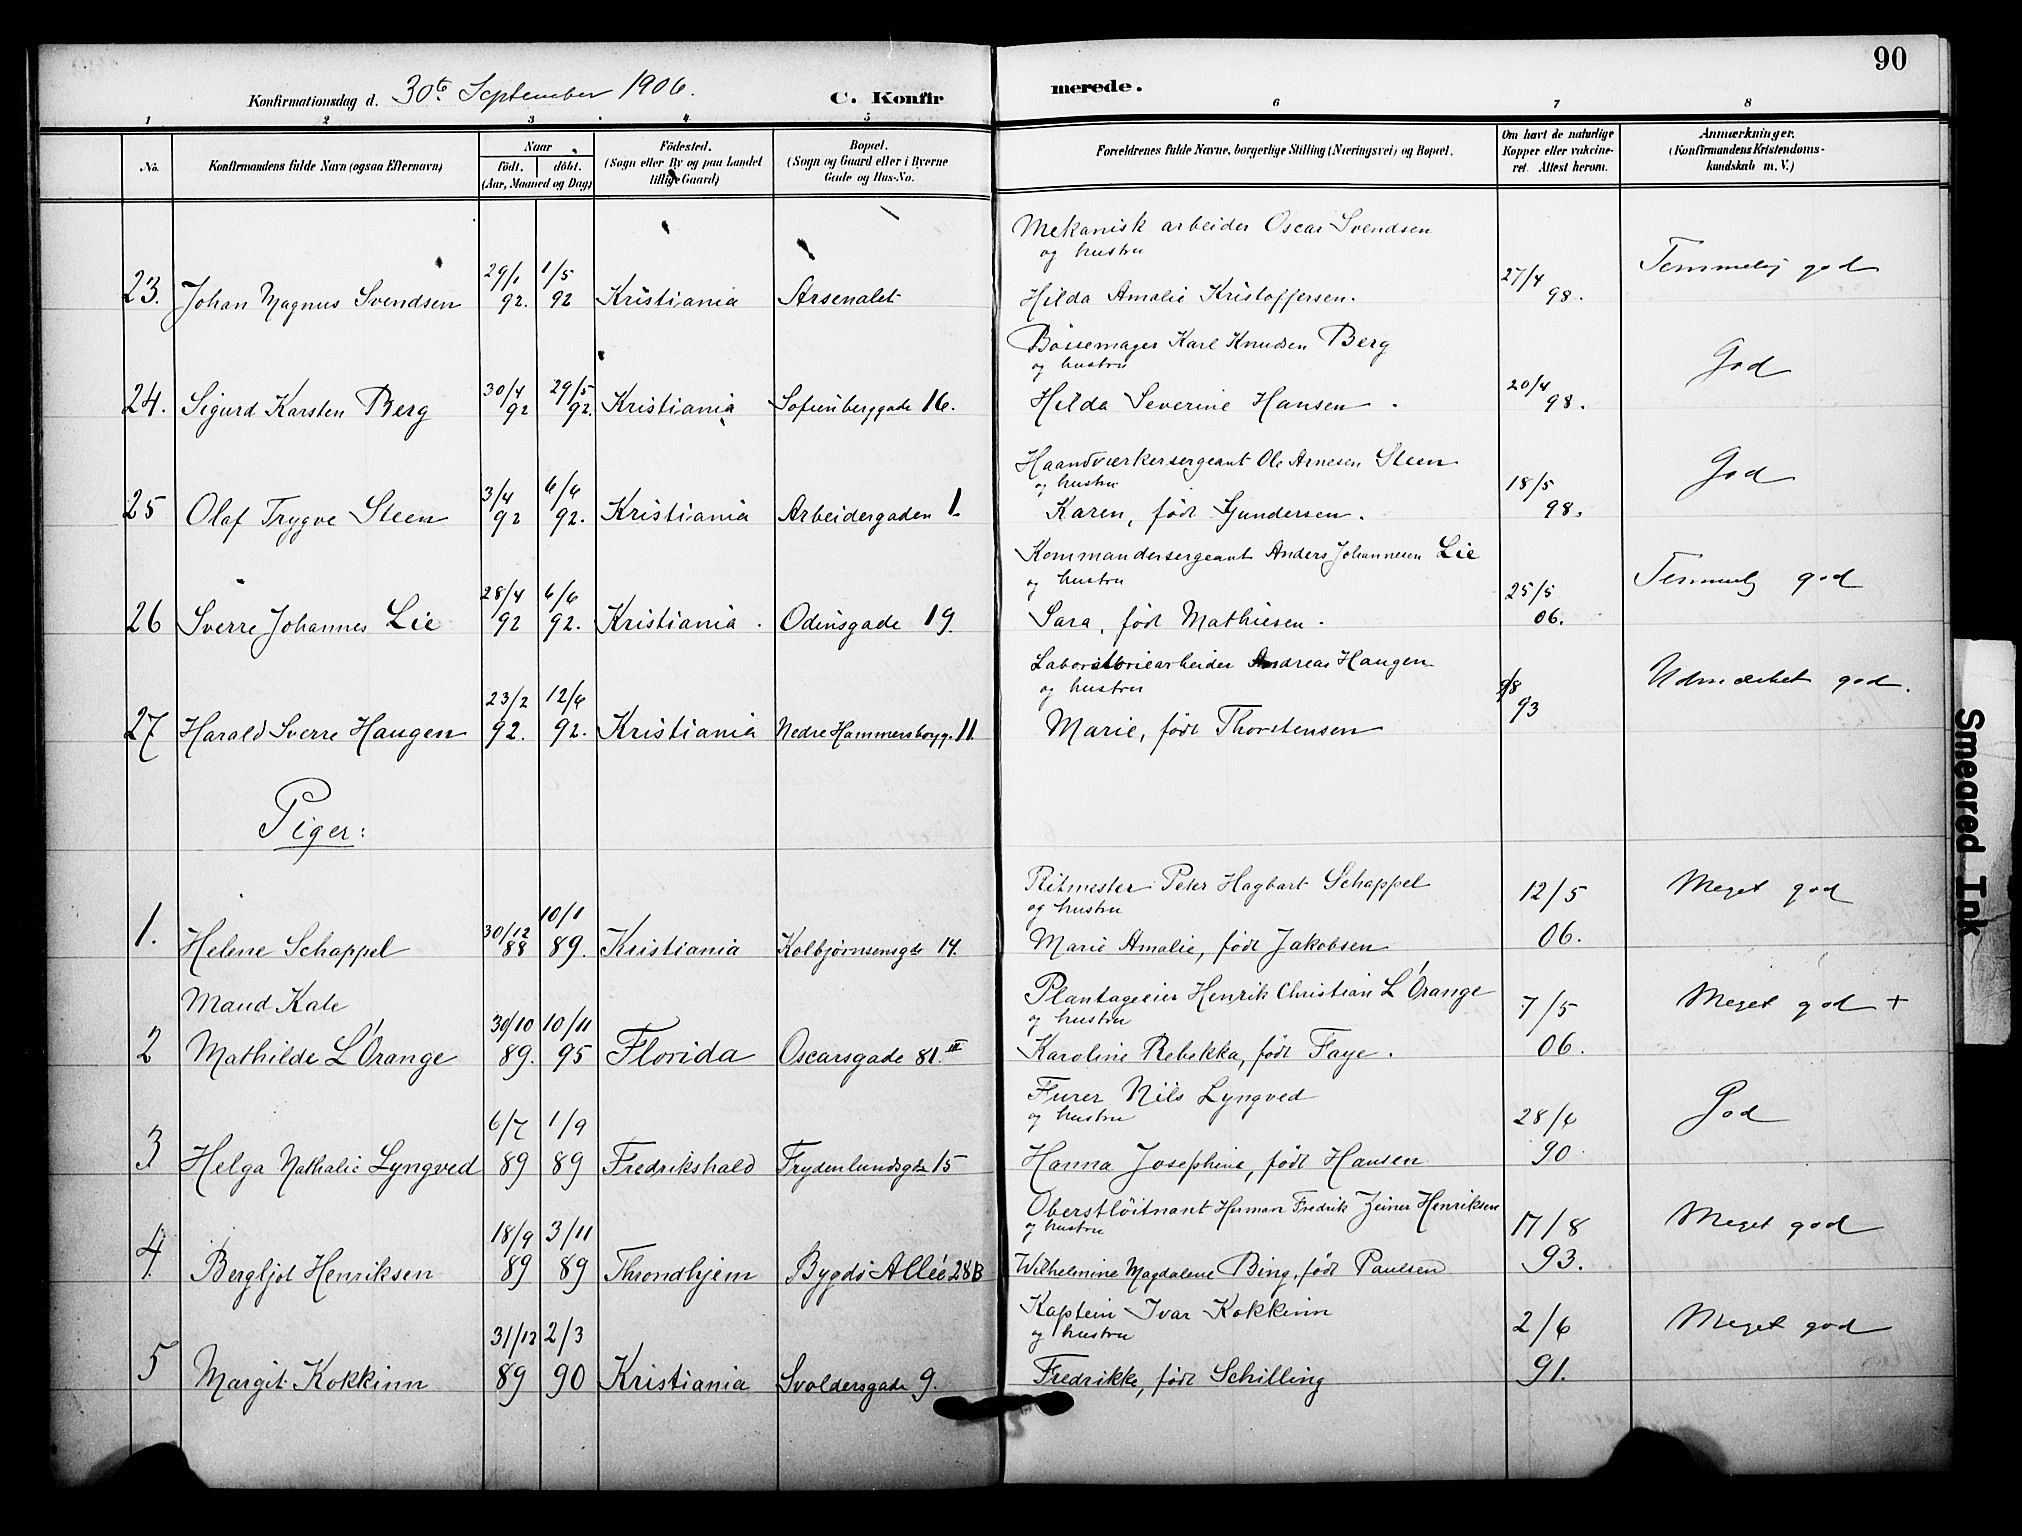 90
Konfirmationsdag d. 30te September 1906. C. Konfir merede.
1 2 3 4 5 6 7 8
No. Konfirmandens fulde Navn (ogsaa Efternavn) Naar født. døbt. (Aar, Maaned og Dag) Fødested. (Sogn eller By og paa Landet tillige Gaard) Bopæl. (Sogn og Gaard eller i Byerne Gade og Hus-No. Forældrenes fulde Navne, borgerlige Stilling (Næringsvei) og Bopæl. Om havt de naturlige Kopper eller vakcineret. Attest herom. Anmærkninger. (Konfirmandens Kristendomskundskab m. V.)
Mekanisk arbeider Oscar Svendsen
og hustru
23. Johan Magnus Svendsen 29/1 92. 1/5 92 Kristiania Arsenalet Hilda Amalie Kristoffersen. 27/4 98. Temmelig god
Bøssemager Karl Knudsen Berg
og hustru
24. Sigurd Karsten Berg 30/4 92 29/5 92. Kristiania Sofienberggade 16. Hilda Severine Hansen. 20/4 98. God
Haandværkersergeant Ole Arnesen Steen
og hustru
25 Olaf Trygve Steen 3/4 92 6/6 92. Kristiania Arbeidergaden 1. Karen, født Gundersen. 18/5 98. God
Kommandersergeant Anders Johannesen Lie
og hustru
26 Sverre Johannes Lie 28/4 92 6/6 92. Kristiania. Odinsgade 19. Sara, født Mathiesen. 25/5 06. Temmelig god
Laboratoriearbeider Andreas Haugen
og hustru
27 Harald Sverre Haugen 23/2 92. 12/6 92. Kristiania Nedre Hammersborgg. 11. Marie, født Thorstensen 9/8 93 Udmærket god.
Piger:
Ritmester Peter Hagbart Schappel
og hustru
1. Helene Schappel 30/12 88 10/1 89. Kristiania Kolbjørnsensgt 14. Marie Amalie, født Jakobsen 12/5 06. Meget god
Maud Kate
Plantageeier Henrik Christian L'Orange
og hustru
2 Mathilde L'Orange 30/10 89. 10/11 95 Florida Oscarsgade 81. III Karoline Rebekka, født Faye. 7/5 06. Meget god +
Furer Nils Lyngved
og hustru
3 Helga Nathalie Lyngved 6/7 89 1/9 89 Fredrikshald Frydenlundsgt 15 Hanna Josephine, født Hansen 28/6 90. God
Oberstløitnant Herman Fredrik Zeiner Henriksen
og hustru
4. Bergljot Henriksen 18/9 89 3/11 89 Throndhjem Bygdø Allée 28B Wilhelmine Magdalene Bing, født Paulsen 17/8 93. Meget god
Kaptein Ivar Kokkinn
og hustru
5 Margit Kokkinn 31/12 89 2/3 90 Kristiania Svoldersgade 9. Fredrikke, født Schilling 2/6 91. Meget god
Smeared Ink